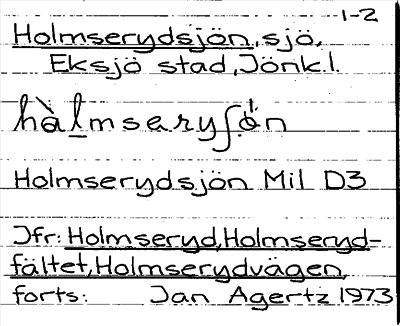 1-2
Holmserydsjön, sjö,
Eksjö stad, Jönk.l.
hàlmseryʃǿn
Holmserydsjön Mil D3
Jfr: Holmseryd, Holmseryd-
fältet, Holmserydvägen,
forts: Jan Agertz 1973